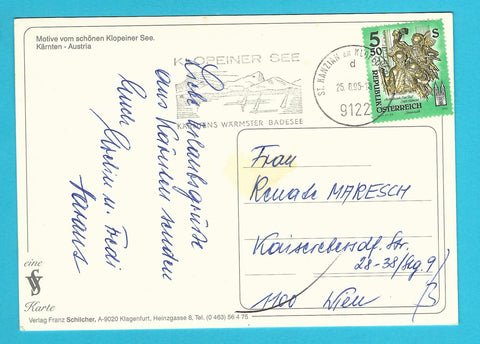 Motive vom schönen Klopeiner See.
Kärnten - Austria
KLOPEINER SEE
KÄRNTENS WÄRMSTER BADESEE
ST. KANZIAN AM KLOP
d
25.8.95-1
9122
5 S
50
REPUBLIK
ÖSTERREICH
Liebe Urlaubsgrüße
aus Kärnten senden
Euch u. Fredi
Frau
Renate MARESCH
Kaiserebersdf. Str.
28-38/Stg. 9/
1100 Wien
eine
Karte
Verlag Franz Schilcher, A-9020 Klagenfurt, Heinzgasse 8, Tel. (0 463) 56 4 75